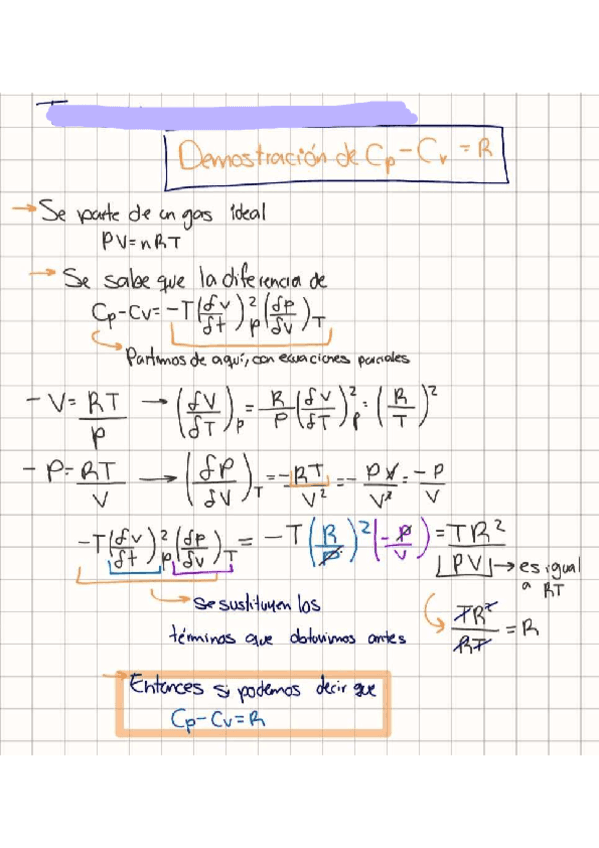 Demostración de Cp - Cv = R
→ Se parte de un gas ideal
PV = nRT
→ Se sabe que la diferencia de
Cp - Cv = -T(δv/δt)²p (δp/δv)T
Partimos de aquí, con ecuaciones parciales
- V = RT/P → (δV/δT)p = R/P (δv/δT)²p = (R/T)²
- P = RT/V → (δP/δV)T = -RT/V² = -PV/V² = -P/V
-T(δv/δt)²p (δp/δv)T = -T(R/P)²(-P/V) = TR²/PV → es igual
a RT
Se sustituyen los
términos que obtuvimos antes
TR²/RT = R
Entonces si podemos decir que
Cp - Cv = R